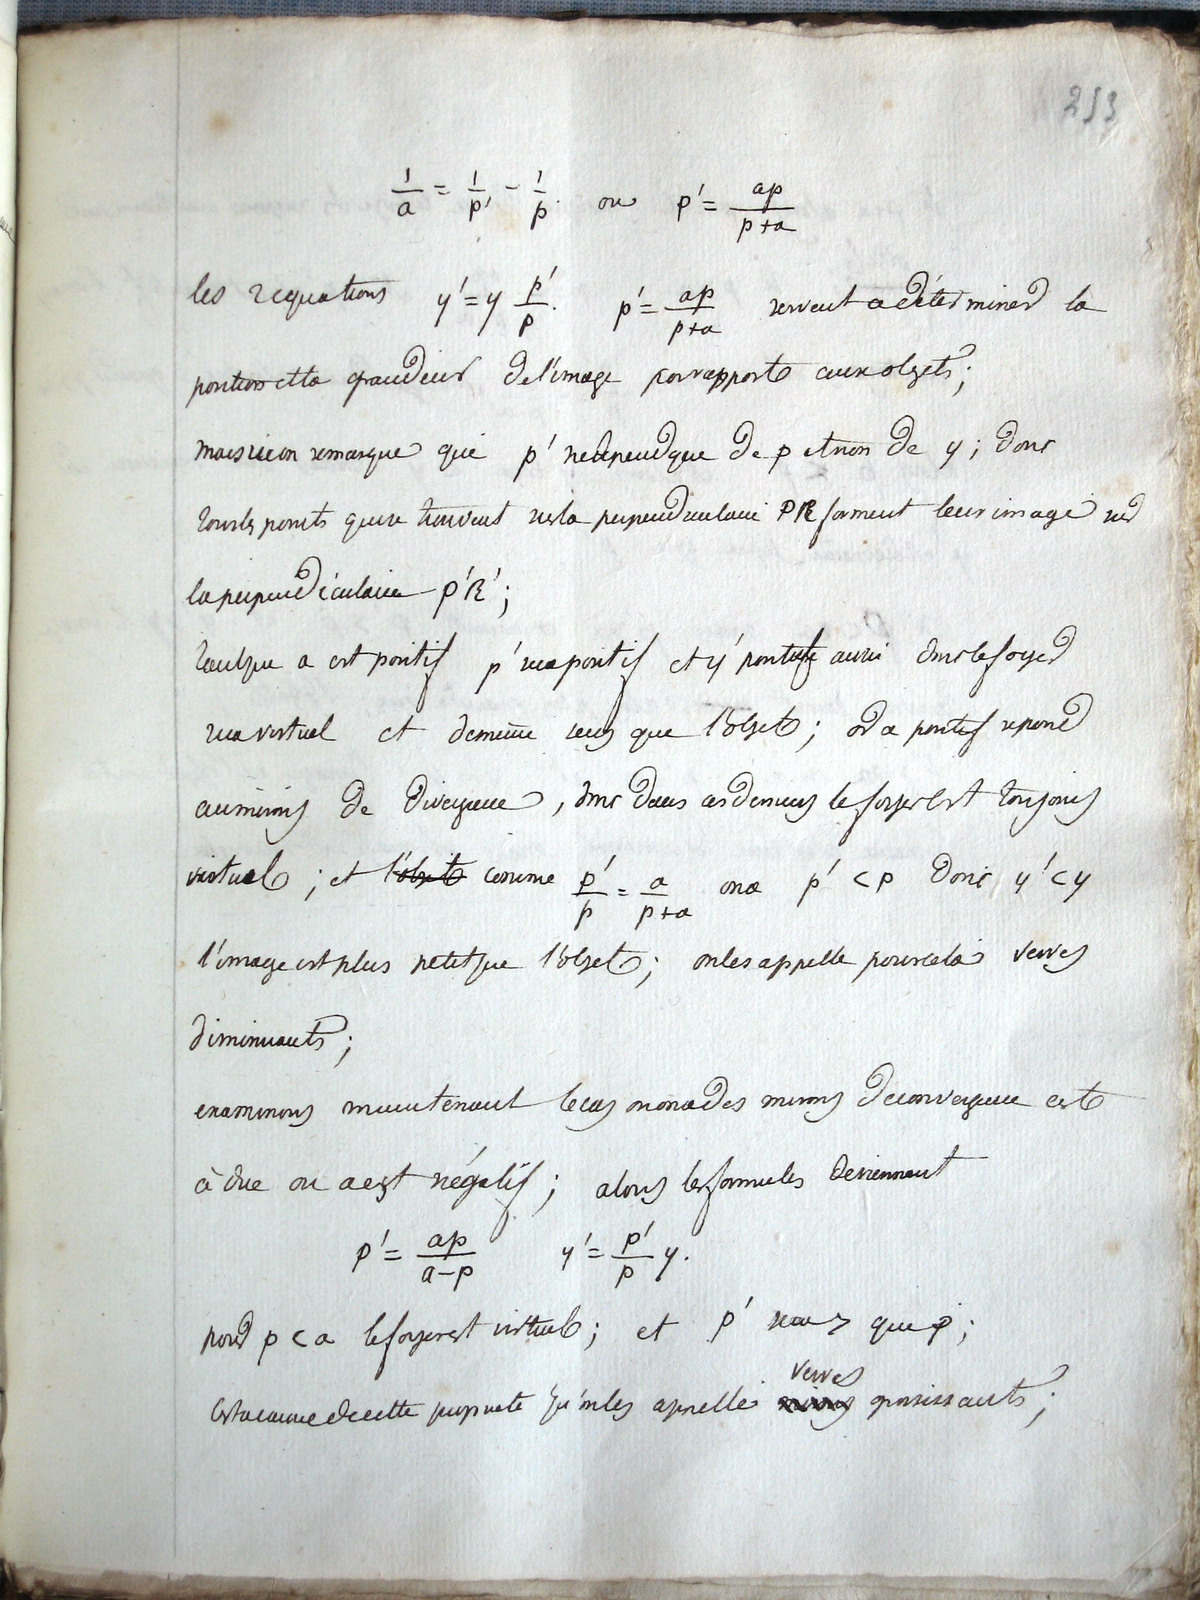 253
1/a = 1/p' - 1/p. ou p' = ap/(p+a)
les 2 equations y' = y p'/p. p' = ap/(p+a) servent a déterminer la
position et la grandeur de l'image par rapport aux objets;
mais si on remarque que p' ne depend que de p et non de y; donc
tous les points qui se trouvent sur la perpendiculaire PR forment leur image sur
la perpendiculaire P'R';
tant que a est positif p' sera positif et y' positif aussi donc le foyer
sera virtuel et de meme sens que l'objet; or a positif repond
au mirois de divergence, donc dans ces derniers le foyer est toujours
virtuel; et l'objet comme p'/p = a/(p+a) on a p' < p donc y' < y
l'image est plus petit que l'objet; on les appelle pour cela verres
diminuants;
examinons maintenant le cas on on a des mirois de convergence c'est
à dire ou a est négatif; alors les formules deviennent
p' = ap/(a-p) y' = p'/p y.
pour p < a le foyer est virtuel; et p' sera > que p;
c'est a cause de cette propriete qu'on les appelle verres mirois grosissants;